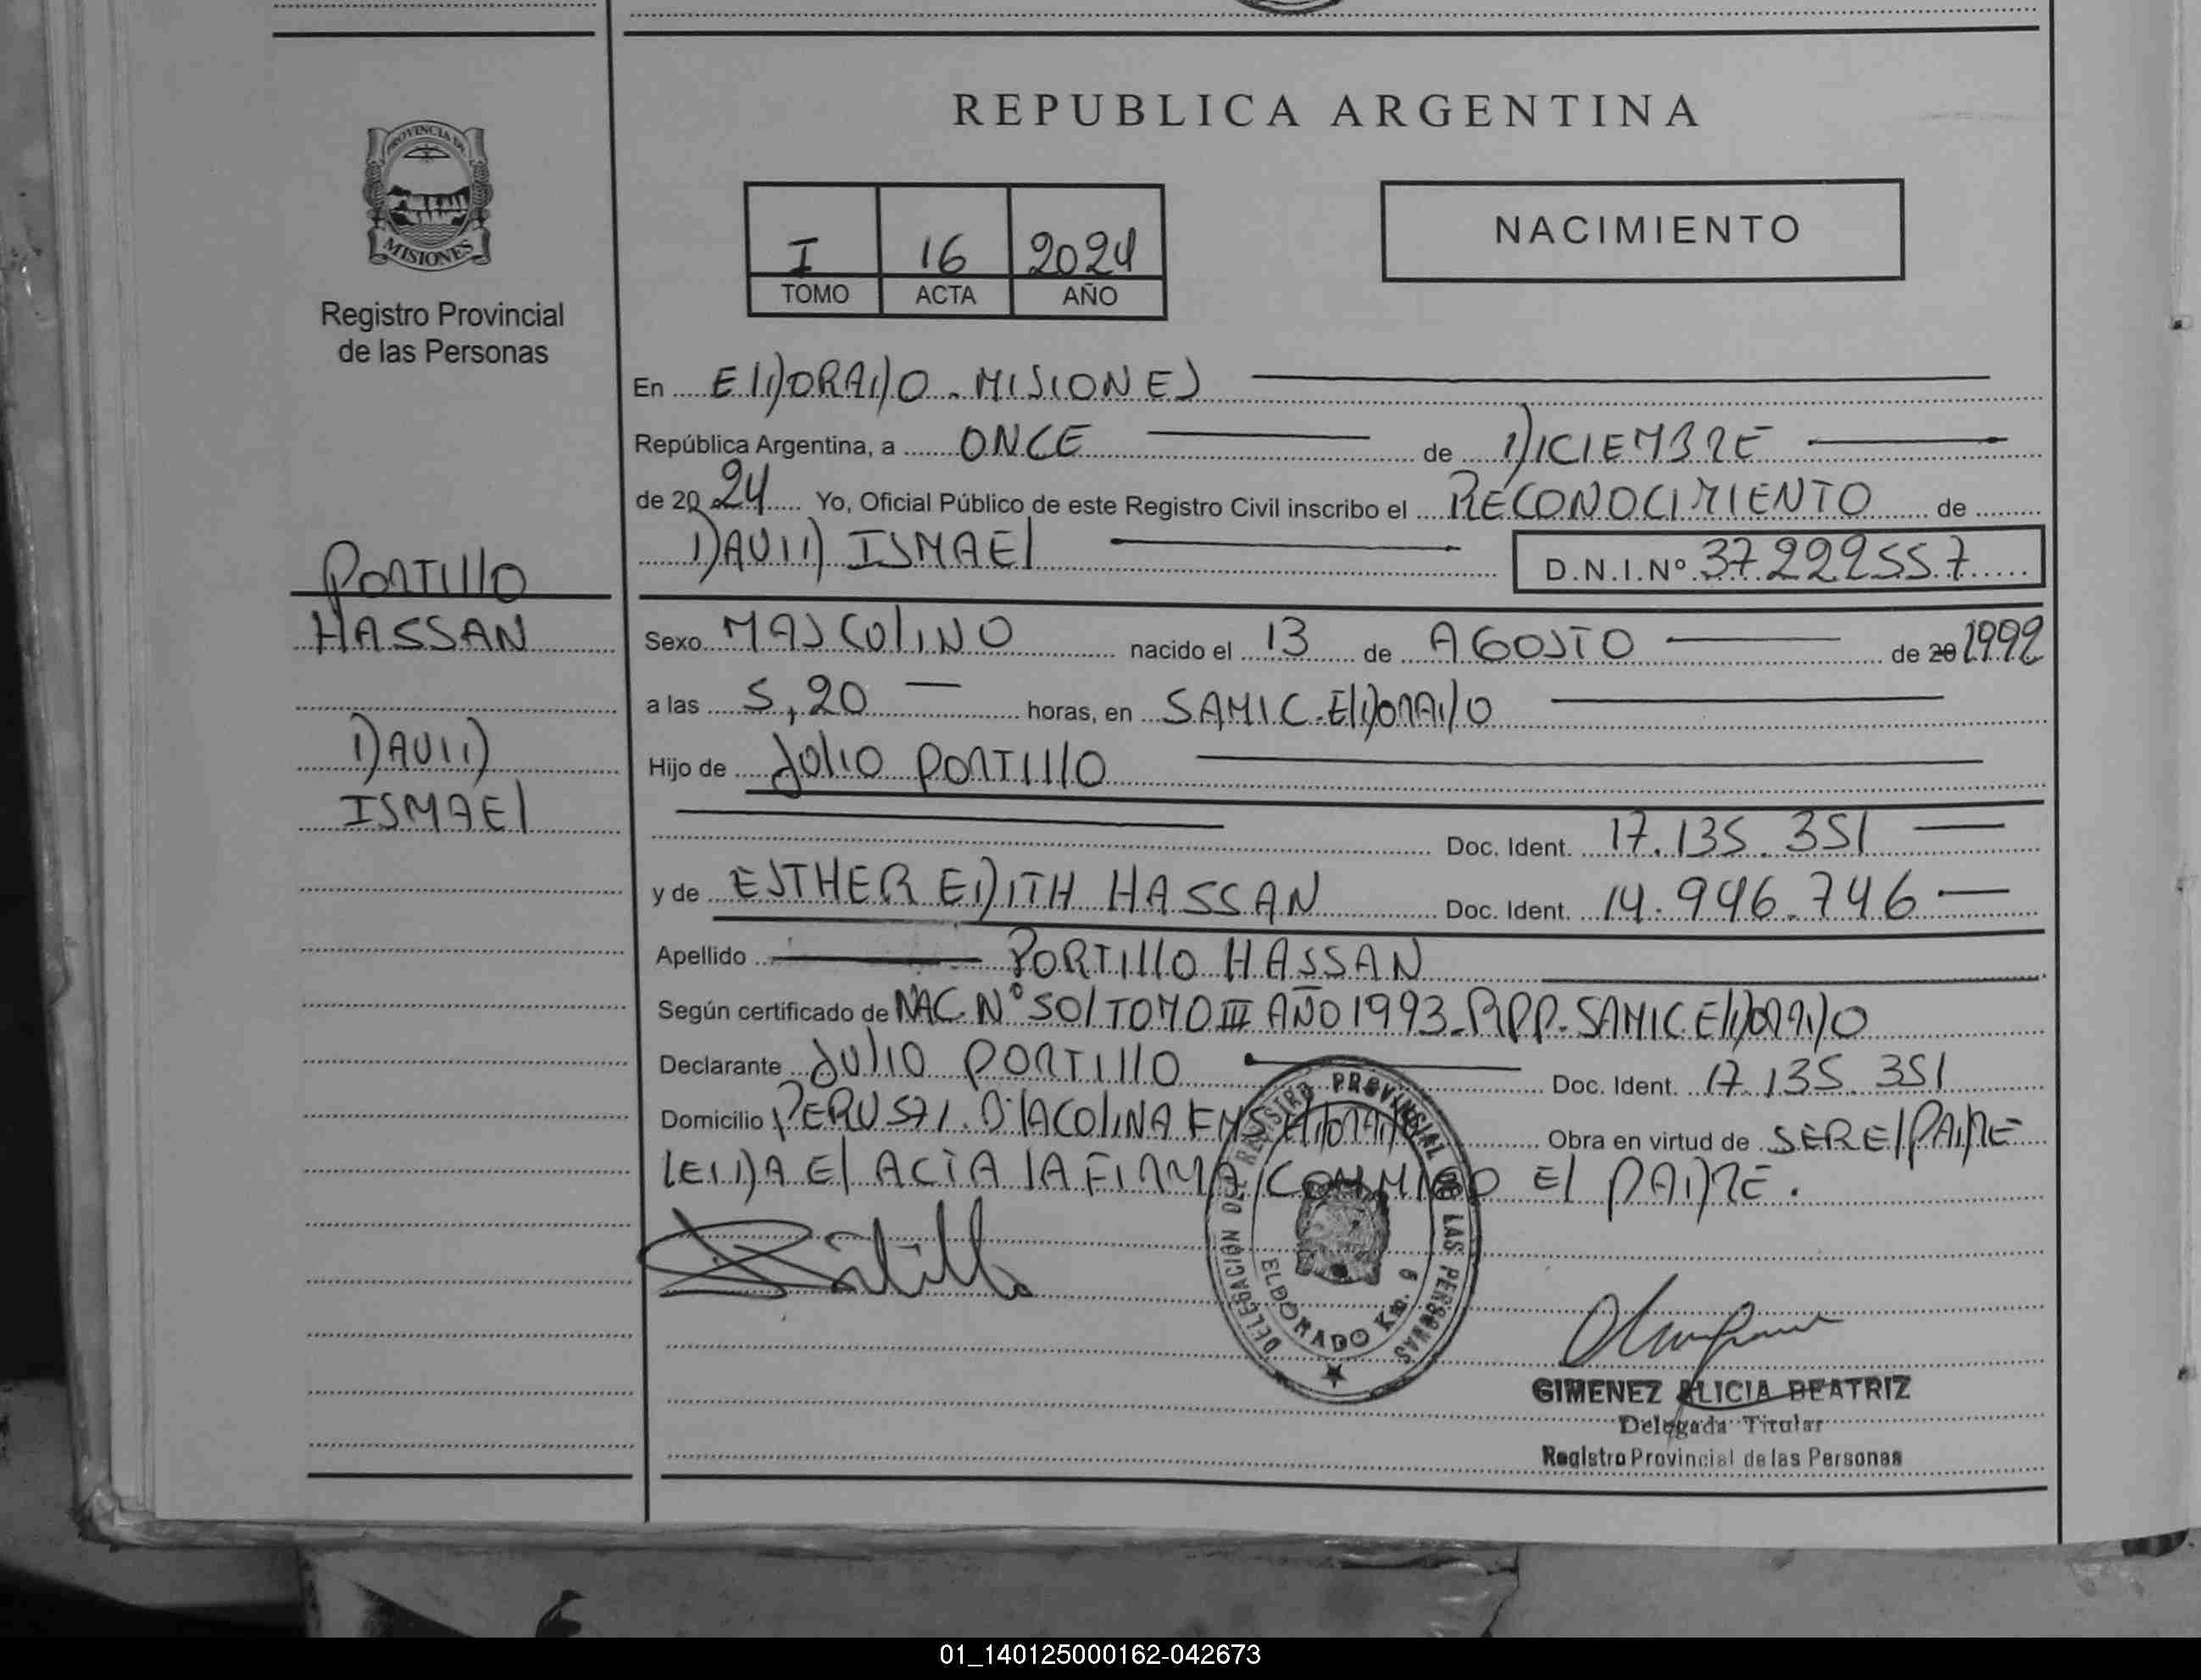 REPUBLICA ARGENTINA
PROVINCIA DE
MISIONES
Registro Provincial
de las Personas
NACIMIENTO
I 16 2024
TOMO ACTA AÑO
En ELDORADO - MISIONES
República Argentina, a ONCE de DICIEMBRE
de 20 24 Yo, Oficial Público de este Registro Civil inscribo el RECONOCIMIENTO de
DAVID ISMAEL D.N.I.Nº 37.222557
PORTILLO
HASSAN
DAVID
ISMAEL
Sexo MASCULINO nacido el 13 de AGOSTO de 20 1992
a las 5,20 horas, en SAMIC-ELDORADO
Hijo de JULIO PORTILLO
Doc. Ident. 17.135.351
y de ESTHER EDITH HASSAN Doc. Ident. 14.946.746
Apellido PORTILLO HASSAN
Según certificado de NAC. Nº 501 TOMO III AÑO 1993-RPP-SAMIC ELDORADO
Declarante JULIO PORTILLO Doc. Ident. 17.135.351
Domicilio PERU 571. Bº LA COLINA KM5 ELDORADO Obra en virtud de SER EL PADRE
LEIDA EL ACTA LA FIRMA CONMIGO EL PADRE.
DELEGACION DEL REGISTRO PROVINCIAL DE LAS PERSONAS
ELDORADO Km. 5
GIMENEZ ALICIA BEATRIZ
Delegada Titular
Registro Provincial de las Personas
01_140125000162-042673